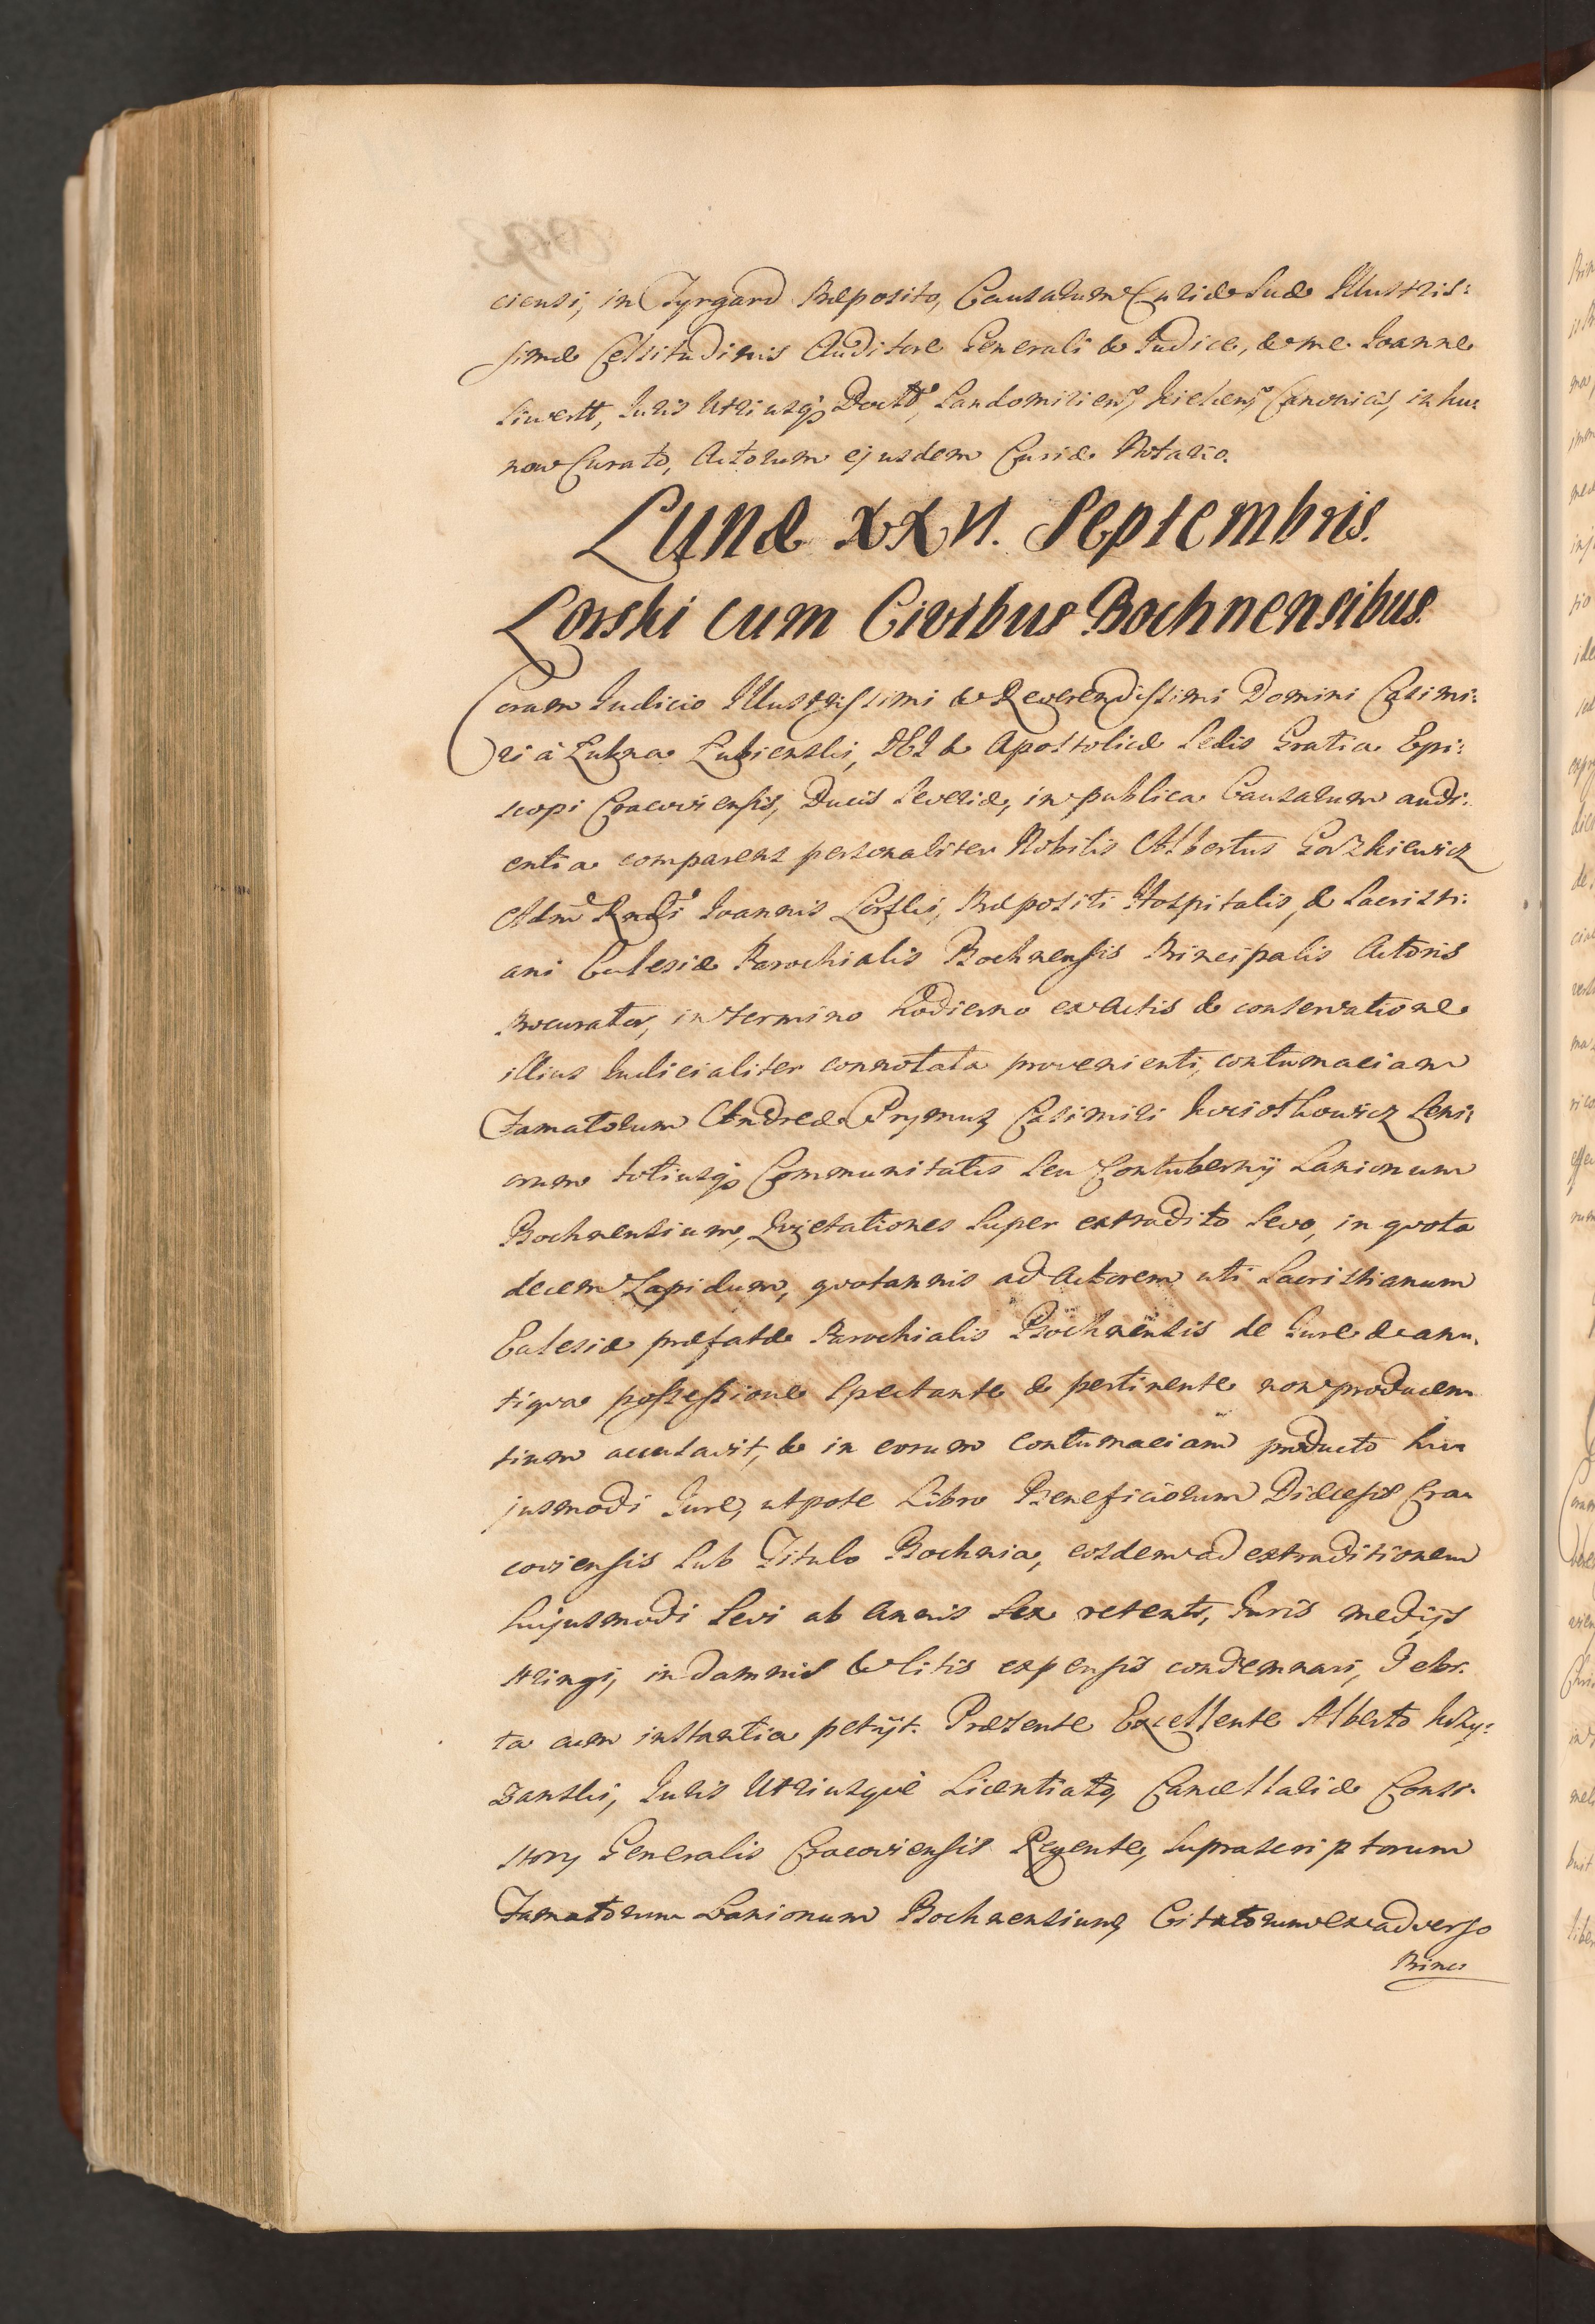 ciensi, in Tyrgard Præposito, Causarum Curiæ Suæ Illustris:
simæ Celsitudinis Auditore Generali & Judice, & me Joanne
Siwertt, Juris Utriusq; Doctre, Sandomirien, Kielcen, Canonico, in Iw:
now Curato, Actorum ejusdem Curiæ Notario.
Lunæ XXVI. Septembris.
Lorski cum Civibus Bochnensibus.
Coram Judicio Illustrissimi & Reverendissimi Domini Casimi:
ri à Lubna Lubienski, DEI & Apostolicæ Sedis Gratia Epi:
scopi Cracoviensis, Ducis Severiæ, in publica Causarum audi:
entia comparens personaliter Nobilis Albertus Gorzkiewicz
Adm Rndi Joannis Lorski, Præpositi Hospitalis, & Sacristi:
ani Eclesiæ Parochialis Bochnensis Principalis Actoris
Procurator, in termino hodierno ex Actis & conservatione
illius Judicialiter connotata provenienti, contumaciam
Famatorum Andreæ Prymus, Casimiri Kwiotkowicz Seni:
orum totiusq; Communitatis Seu Contubernij Lanionum
Bochnensium, Qvietationes Super extradito Sevo, in qvota
decem Lapidum, qvotannis ad Actorem uti Sacristianum
Eclesiæ præfatæ Parochialis Bochnensis de Jure & an:
tiqva possessione Spectante & pertinente non producen:
tium accusavit, & in eorum Contumaciam producto hu:
jusmodi Jure, utpote Libro Beneficiorum Diæcesis Cra:
coviensis Sub Titulo Bochnia, eosdem ad extraditionem
hujusmodi Sevi ab Annis Sex retenti, Juris medijs
stringi, in damnis & litis expensis condemnari, Debi:
ta cum instantia petijt. Præsente Excellente Alberto Krzy:
zanski, Juris Utriusqve Licentiato, Cancellariæ Consi:
storij Generalis Cracoviensis Regente, Suprascriptorum
Famatorum Lanionum Bochnensium, Citatorum ex adverso
Princi